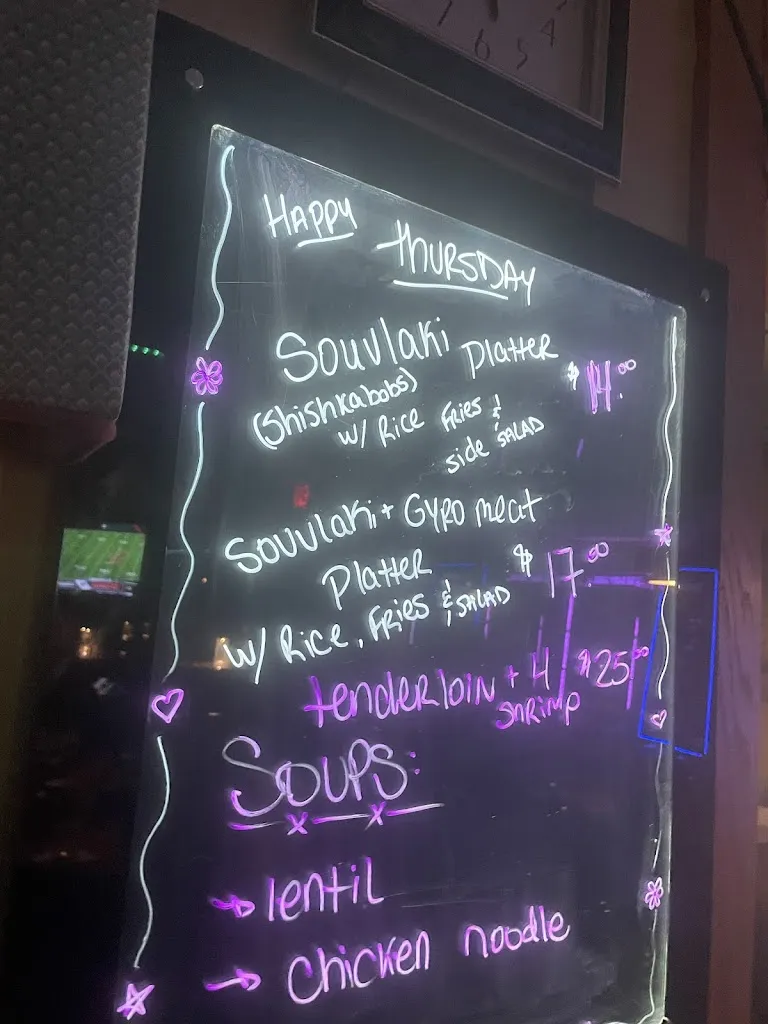 7 6 5 4
HAPPY THURSDAY
Souvlaki Platter $14.00
(Shishkabobs)
w/ Rice Fries &
side SALAD
Souvlaki + GYRO meat
Platter $17.50
w/ Rice, Fries & SALAD
tenderloin + 4 $25.50
shrimp
SOUPS:
→ lentil
→ chicken noodle